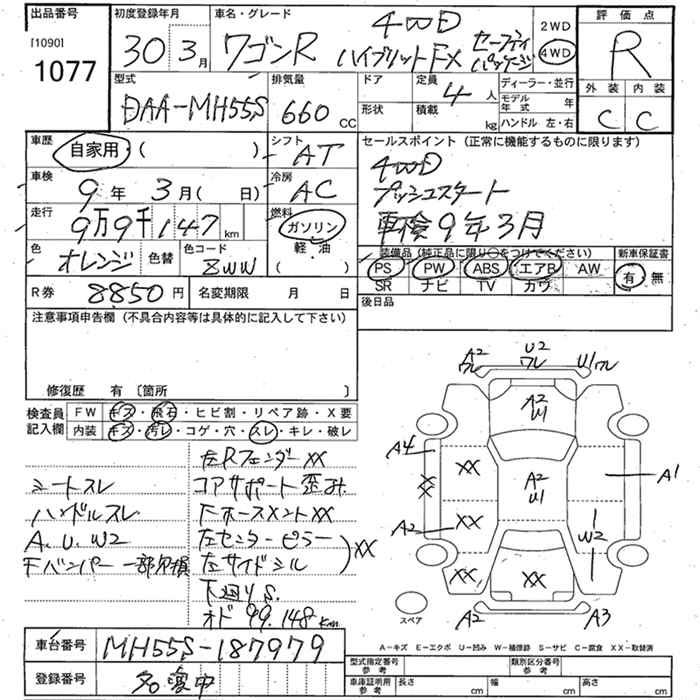 出品番号 初度登録年月 車名・グレード 評価点
[1090]
1077
30年 3月 ワゴンR 4WD ハイブリットFX セーフティパッケージ
2WD
4WD
R
型式 排気量 ドア 定員 ディーラー・並行 外装 内装
DAA-MH55S 660 CC 4人 モデル年式 年
形状 積載 kg ハンドル 左・右 C C
車歴 自家用 ( ) シフト AT セールスポイント (正常に機能するものに限ります)
車検 9年 3月 ( 日) 冷房 AC 4WD
プッシュスタート
走行 9万9千147km 燃料 ガソリン 車検9年3月
軽油
( )
色 オレンジ 色替 色コード ZWW
装備品 (純正品に限り○をつけてください) 新車保証書
PS PW ABS エアB AW 有 無
SR ナビ TV カワ
R券 8850円 名変期限 月 日 後日品
注意事項申告欄 (不具合内容等は具体的に記入して下さい)
修復歴 有 〔箇所 〕
検査員記入欄
FW キズ・飛石・ヒビ割・リペア跡・X要
内装 キズ・汚レ・コゲ・穴・スレ・キレ・破レ
左Rフェンダー XX
シートスレ コアサポート歪み
ハンドルスレ Fホースメント XX
A.U.W2 左センターピラー
Fバンパー一部欠損 左サイドシル XX
下廻りS.
オド 99.148Km
A2 ワレ
U2 ワレ
U1 ワレ
A2 U1
A4
XX
XX
A2 U1
A1
A2
XX
W2
XX
XX
スペア
A2
A3
A-キズ E-エクボ U-凹み W-補修跡 S-サビ C-腐食 XX-取替済
車台番号 MH55S-187979
型式指定番号 参考 類別区分番号 参考
登録番号 名変中
車庫証明用 参考 長さ cm 幅 cm 高さ cm